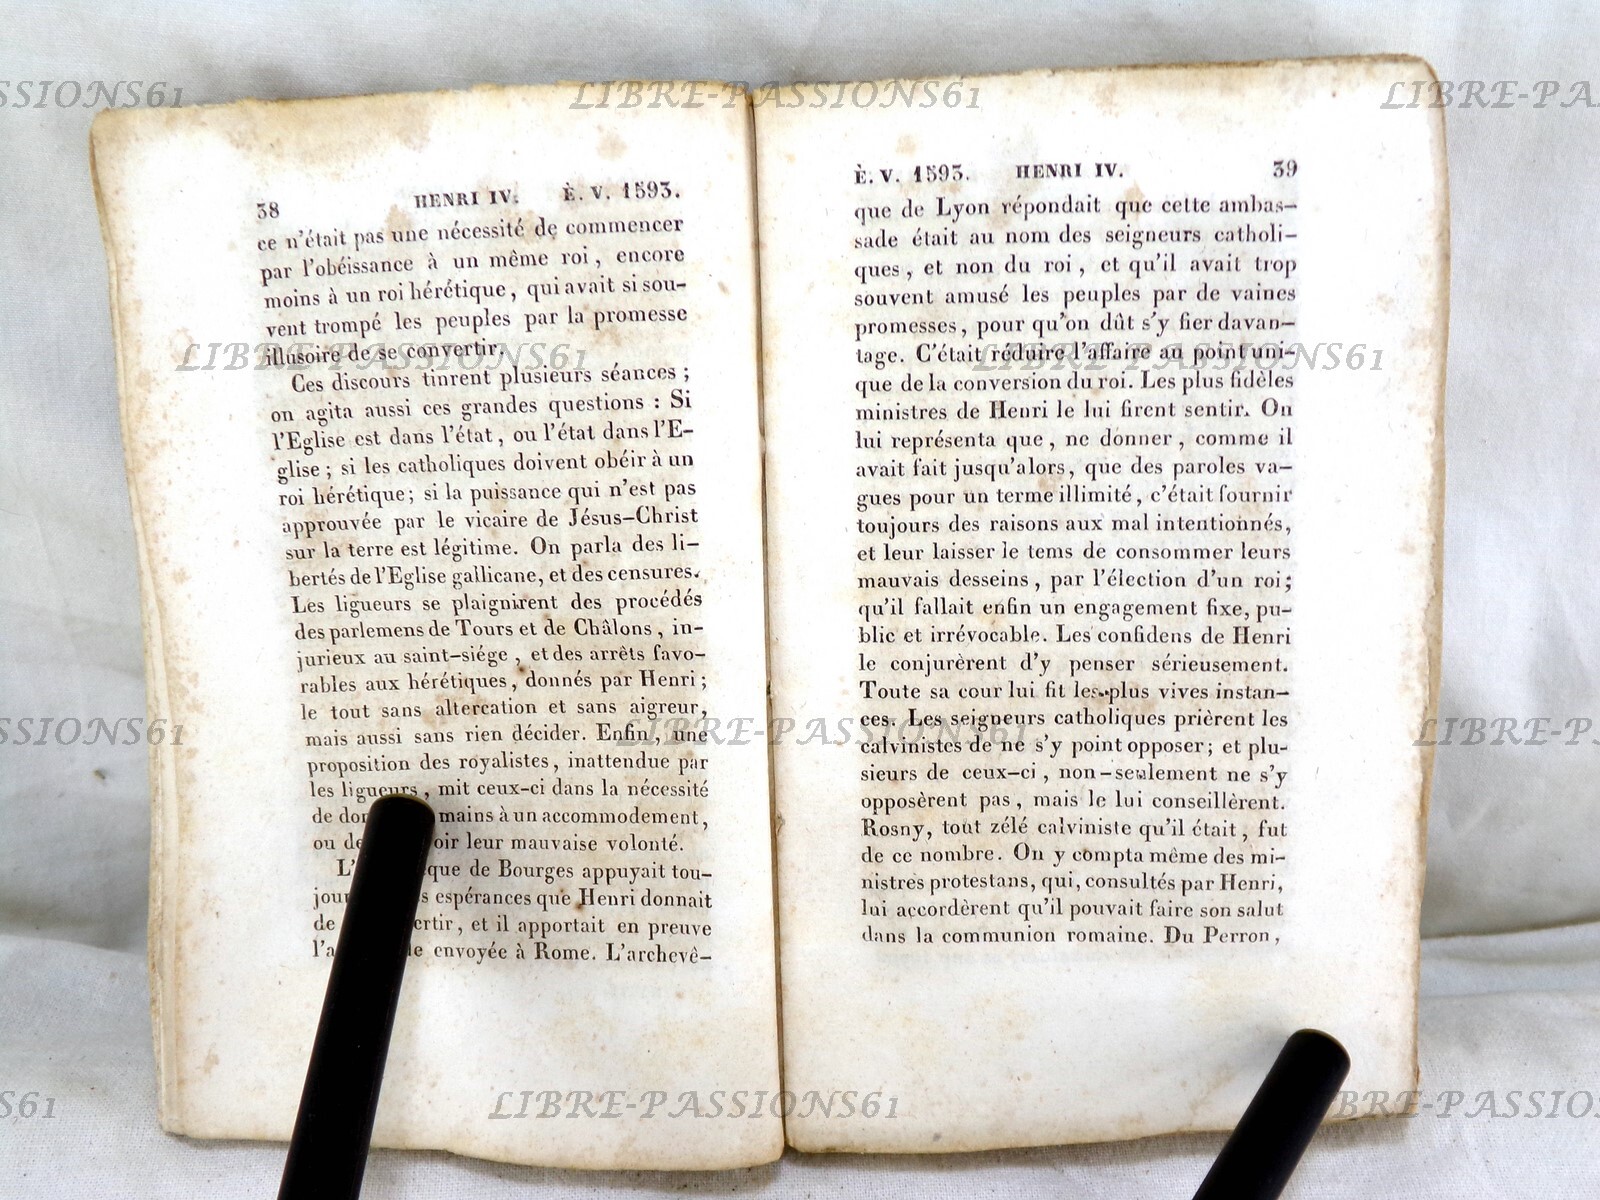 38 HENRI IV. È. V. 1593.
ce n'était pas une nécessité de commencer
par l'obéissance à un même roi, encore
moins à un roi hérétique, qui avait si sou-
vent trompé les peuples par la promesse
illusoire de se convertir.
Ces discours tinrent plusieurs séances;
on agita aussi ces grandes questions : Si
l'Eglise est dans l'état, ou l'état dans l'E-
glise; si les catholiques doivent obéir à un
roi hérétique; si la puissance qui n'est pas
approuvée par le vicaire de Jésus-Christ
sur la terre est légitime. On parla des li-
bertés de l'Eglise gallicane, et des censures.
Les ligueurs se plaignirent des procédés
des parlemens de Tours et de Châlons, in-
jurieux au saint-siége, et des arrêts favo-
rables aux hérétiques, donnés par Henri;
le tout sans altercation et sans aigreur,
mais aussi sans rien décider. Enfin, une
proposition des royalistes, inattendue par
les ligueurs, mit ceux-ci dans la nécessité
de mains à un accommodement,
ou leur mauvaise volonté.
de Bourges appuyait tou-
espérances que Henri donnait
de , et il apportait en preuve
envoyée à Rome. L'archevê-
È. V. 1593. HENRI IV. 39
que de Lyon répondait que cette ambas-
sade était au nom des seigneurs catholi-
ques, et non du roi, et qu'il avait trop
souvent amusé les peuples par de vaines
promesses, pour qu'on dût s'y fier davan-
tage. C'était réduire l'affaire au point uni-
que de la conversion du roi. Les plus fidèles
ministres de Henri le lui firent sentir. On
lui représenta que, ne donner, comme il
avait fait jusqu'alors, que des paroles va-
gues pour un terme illimité, c'était fournir
toujours des raisons aux mal intentionnés,
et leur laisser le tems de consommer leurs
mauvais desseins, par l'élection d'un roi;
qu'il fallait enfin un engagement fixe, pu-
blic et irrévocable. Les confidens de Henri
le conjurèrent d'y penser sérieusement.
Toute sa cour lui fit les plus vives instan-
ces. Les seigneurs catholiques prièrent les
calvinistes de ne s'y point opposer; et plu-
sieurs de ceux-ci, non-seulement ne s'y
opposèrent pas, mais le lui conseillèrent.
Rosny, tout zélé calviniste qu'il était, fut
de ce nombre. On y compta même des mi-
nistres protestans, qui, consultés par Henri,
lui accordèrent qu'il pouvait faire son salut
dans la communion romaine. Du Perron,
LIBRE-PASSIONS61